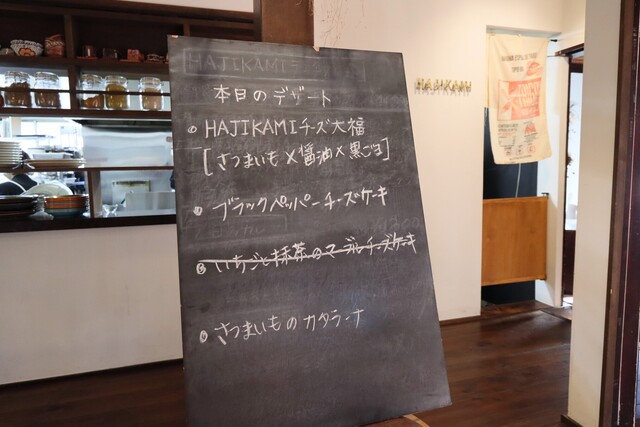 HAJIKAMI
本日のデザート
HAJIKAMIチーズ大福
[さつまいも×醤油×黒ごま]
ブラックペッパーチーズケーキ
いちごと抹茶のマーブルチーズケーキ
さつまいものカタラーナ
HAJIKAMI